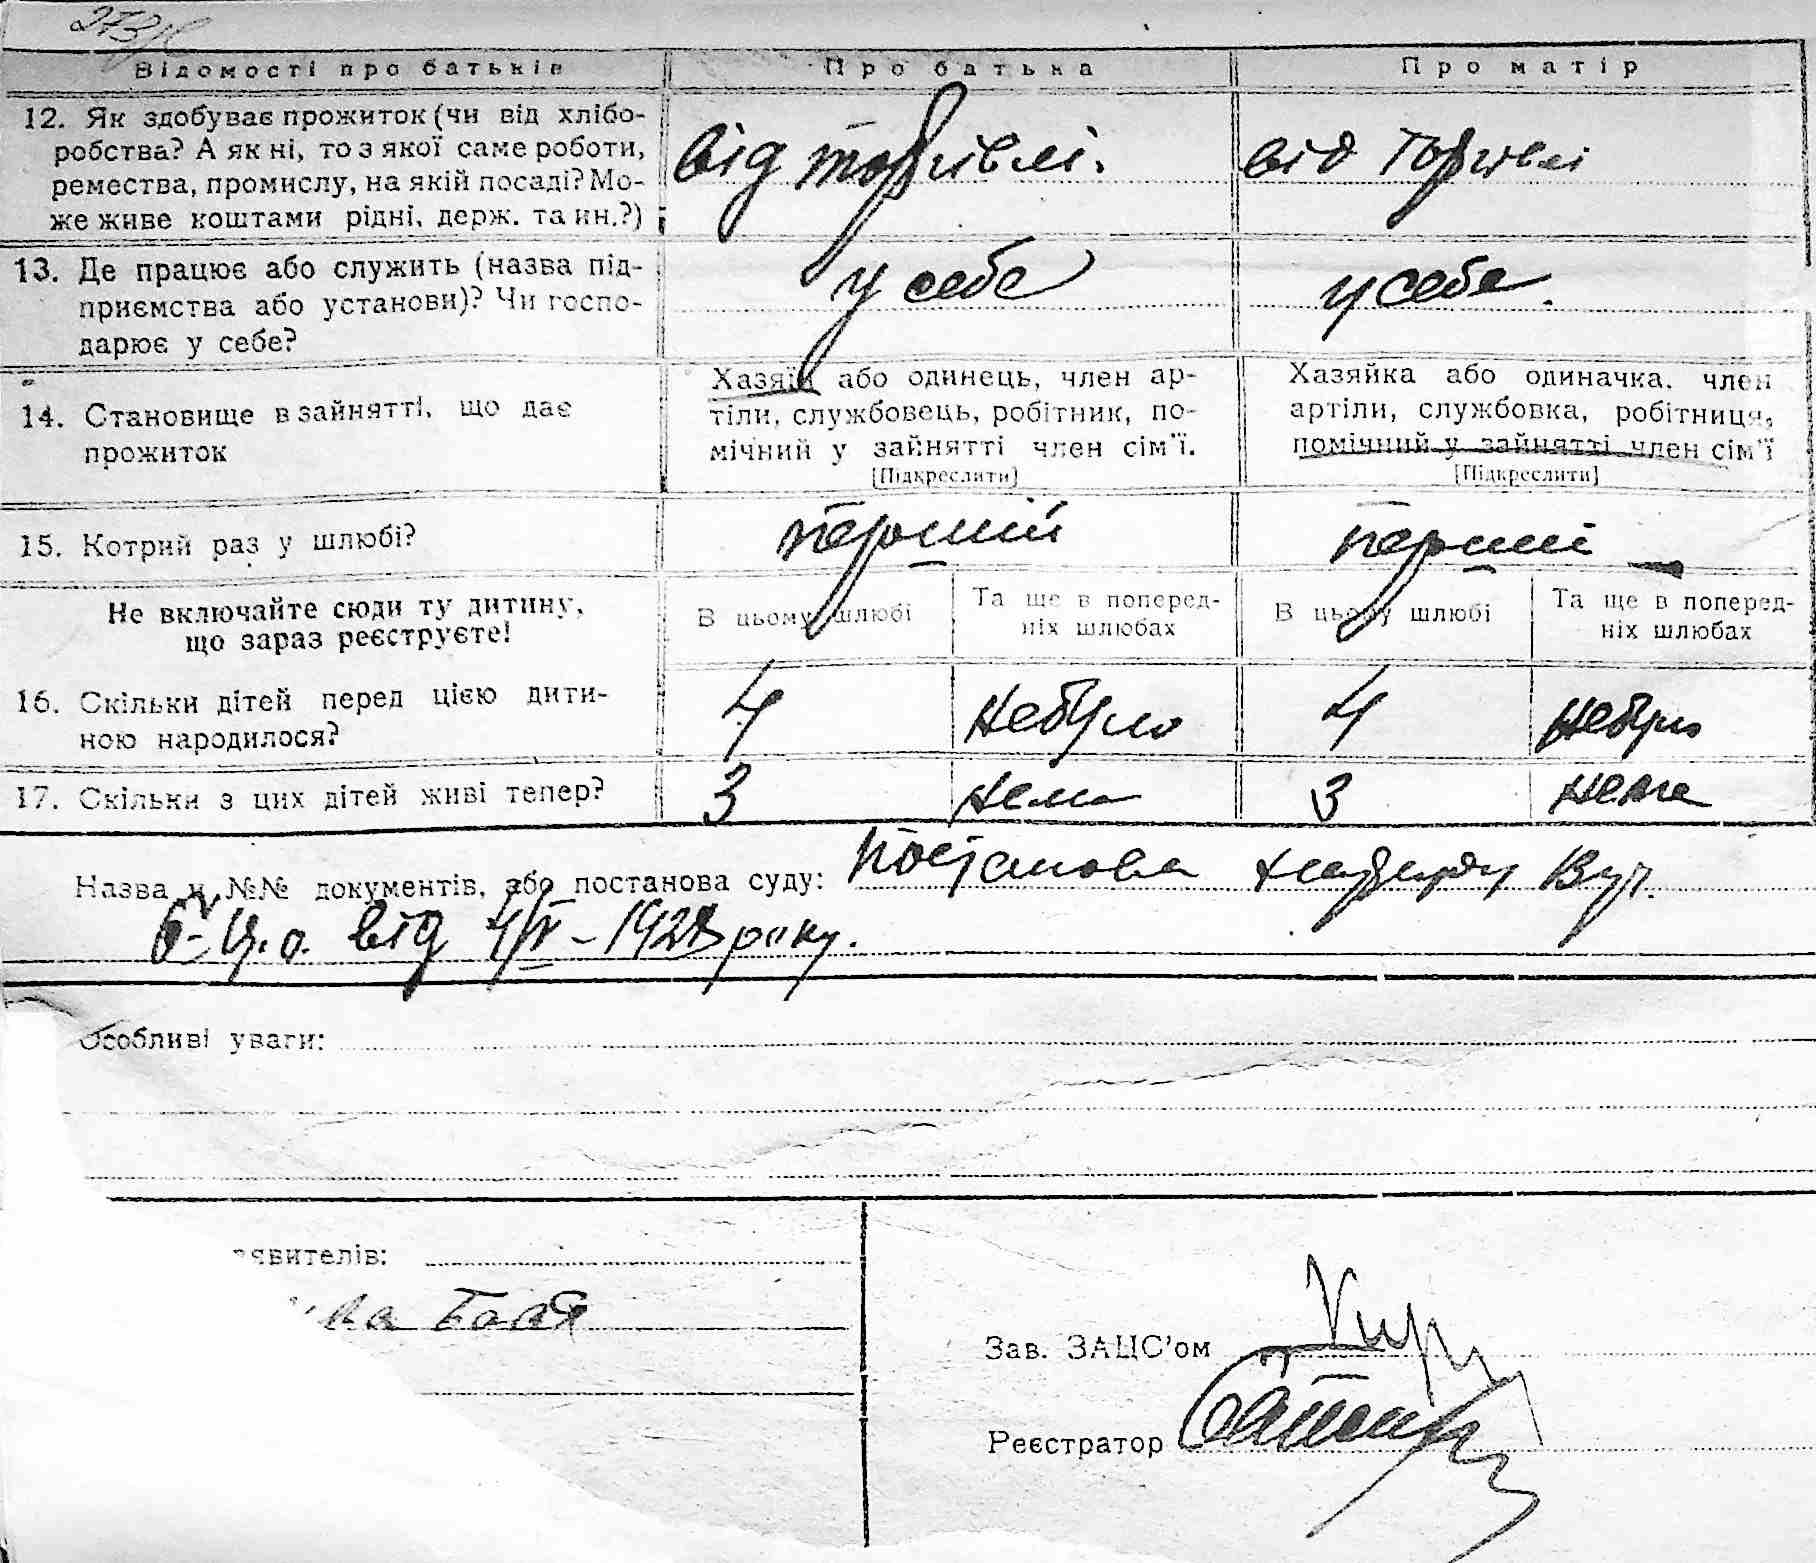 273
Відомості про батьків Про батька Про матір
12. Як здобуває прожиток (чи від хлібо-
робства? А як ні, то з якої саме роботи,
ремества, промислу, на якій посаді? Мо-
же живе коштами рідні, держ. та ин.?)
від торгівлі. від торгівлі
13. Де працює або служить (назва під-
приємства або установи)? Чи госпо-
дарює у себе?
у себе у себе.
14. Становище в зайнятті, що дає
прожиток
Хазяїн або одинець, член ар-
тіли, службовець, робітник, по-
мічний у зайнятті член сім'ї.
[Підкреслити]
Хазяйка або одиначка, член
артіли, службовка, робітниця,
помічний у зайнятті член сім'ї
[Підкреслити]
15. Котрий раз у шлюбі? перший перший
Не включайте сюди ту дитину,
що зараз реєструєте!
В цьому шлюбі
Та ще в поперед-
ніх шлюбах
В цьому шлюбі
Та ще в поперед-
ніх шлюбах
16. Скільки дітей перед цією дити-
ною народилося?
4 небуло 4 небуло
17. Скільки з цих дітей живі тепер? 3 нема 3 нема
Назва й №№ документів, або постанова суду: Постанова
від 4/IV – 1928 року.
Особливі уваги:
явителів:
Бася
Зав. ЗАЦС'ом
Реєстратор